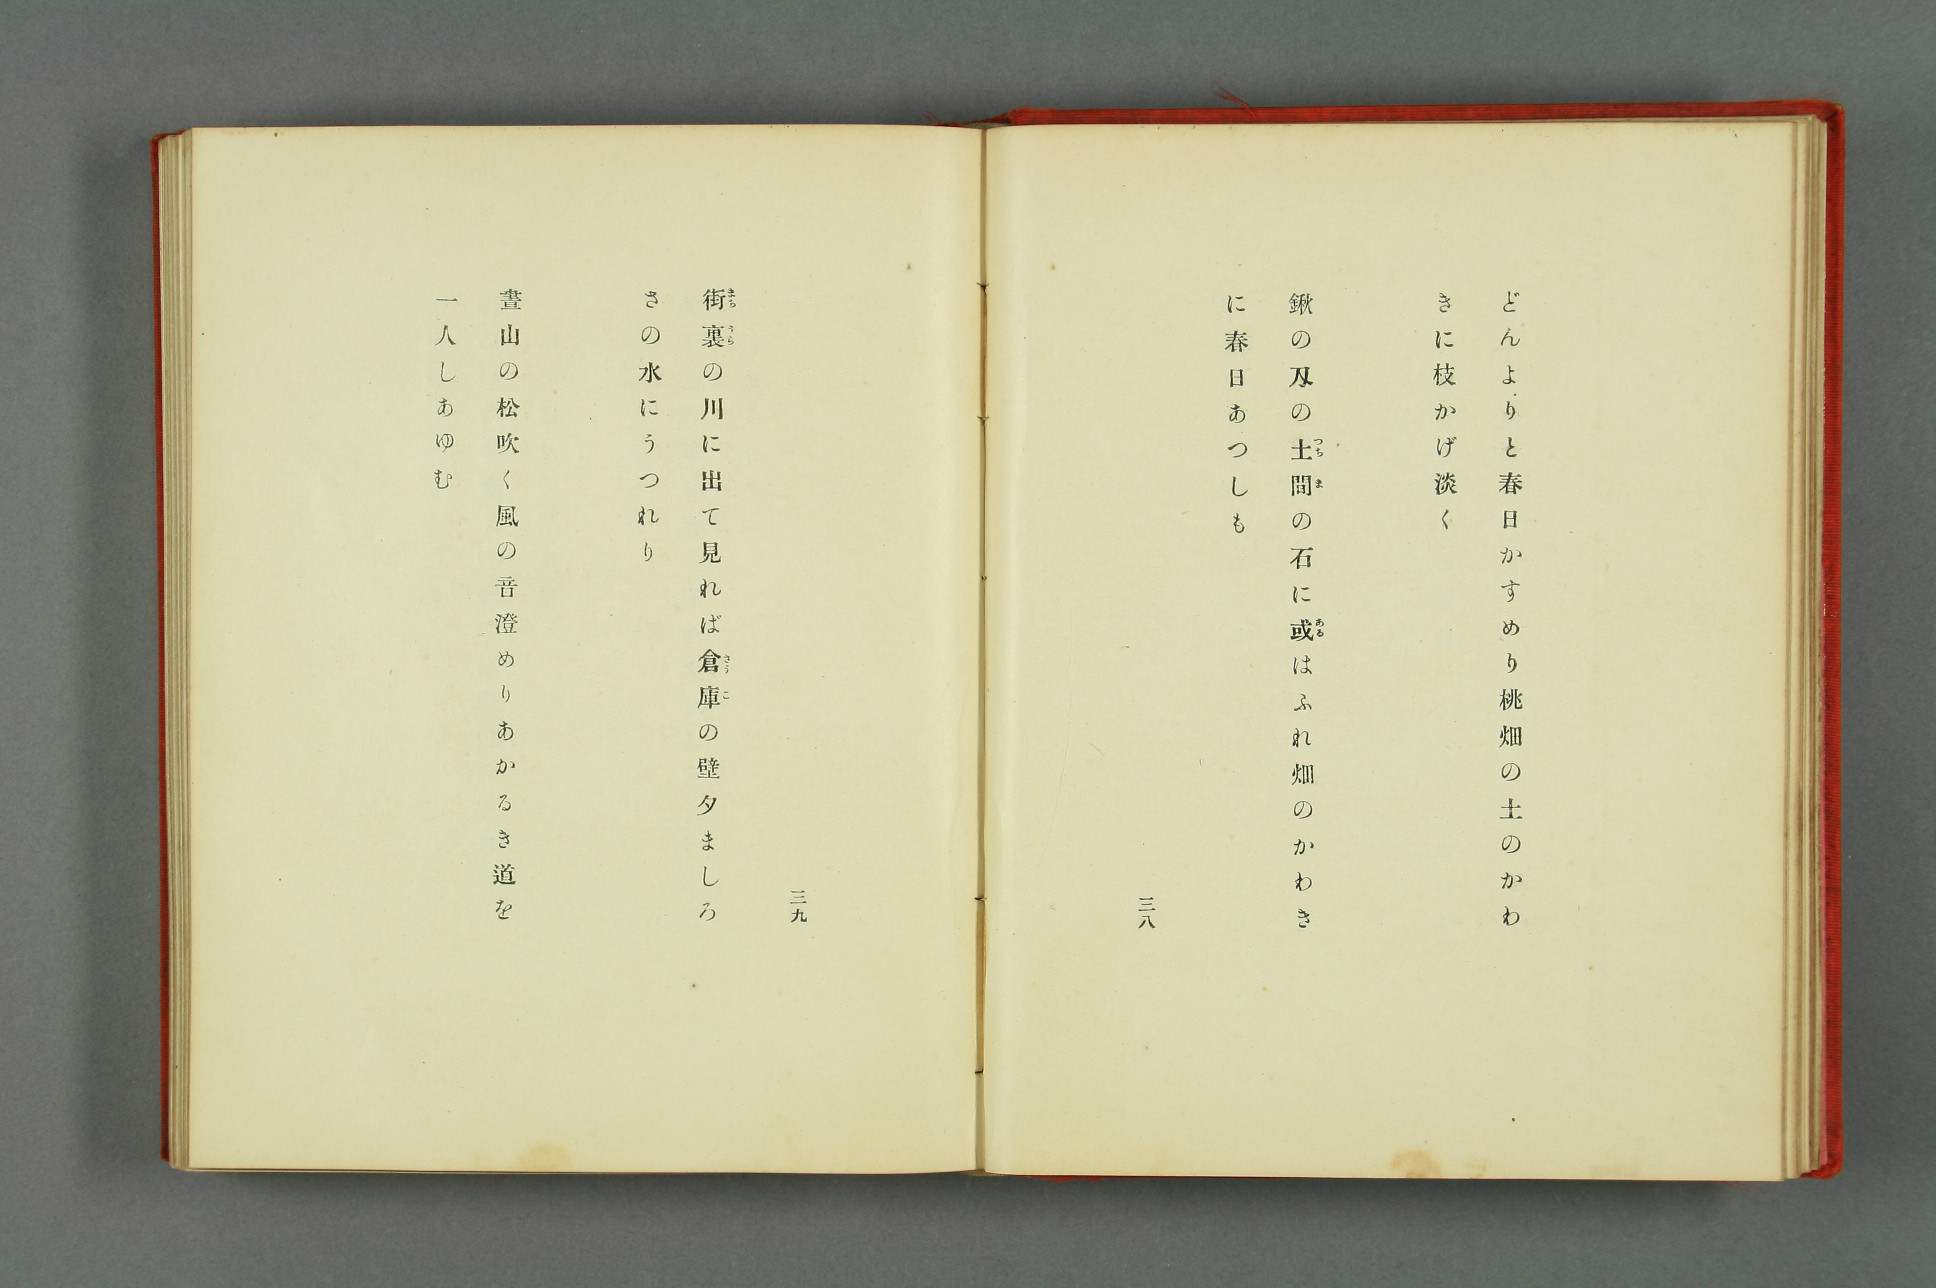 どんよりと春日かすめり桃畑の土のかわ
きに枝かげ淡く
鍬の刄の土間の石に或はふれ畑のかわき
に春日あつしも
三八
三九
街裏の川に出て見れば倉庫の壁夕ましろ
さの水にうつれり
晝山の松吹く風の音澄めりあかるき道を
一人しあゆむ